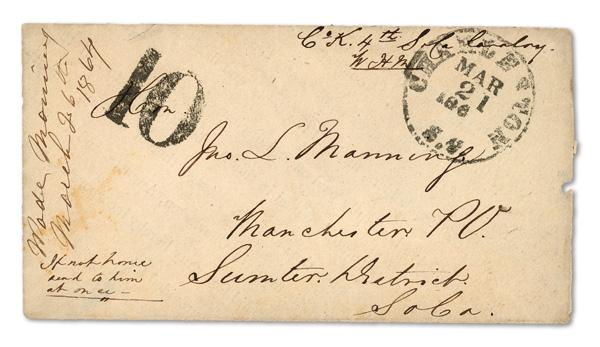 Co K. 4th So Ca Cavalry.
W H M
10
CHARLESTON
MAR
21
186
S.C.
Hon
Jno. L. Manning
Manchester P.O.
Sumter. District.
So Ca.
Wade Manning
March 26th
1864
If not home
send to him
at once